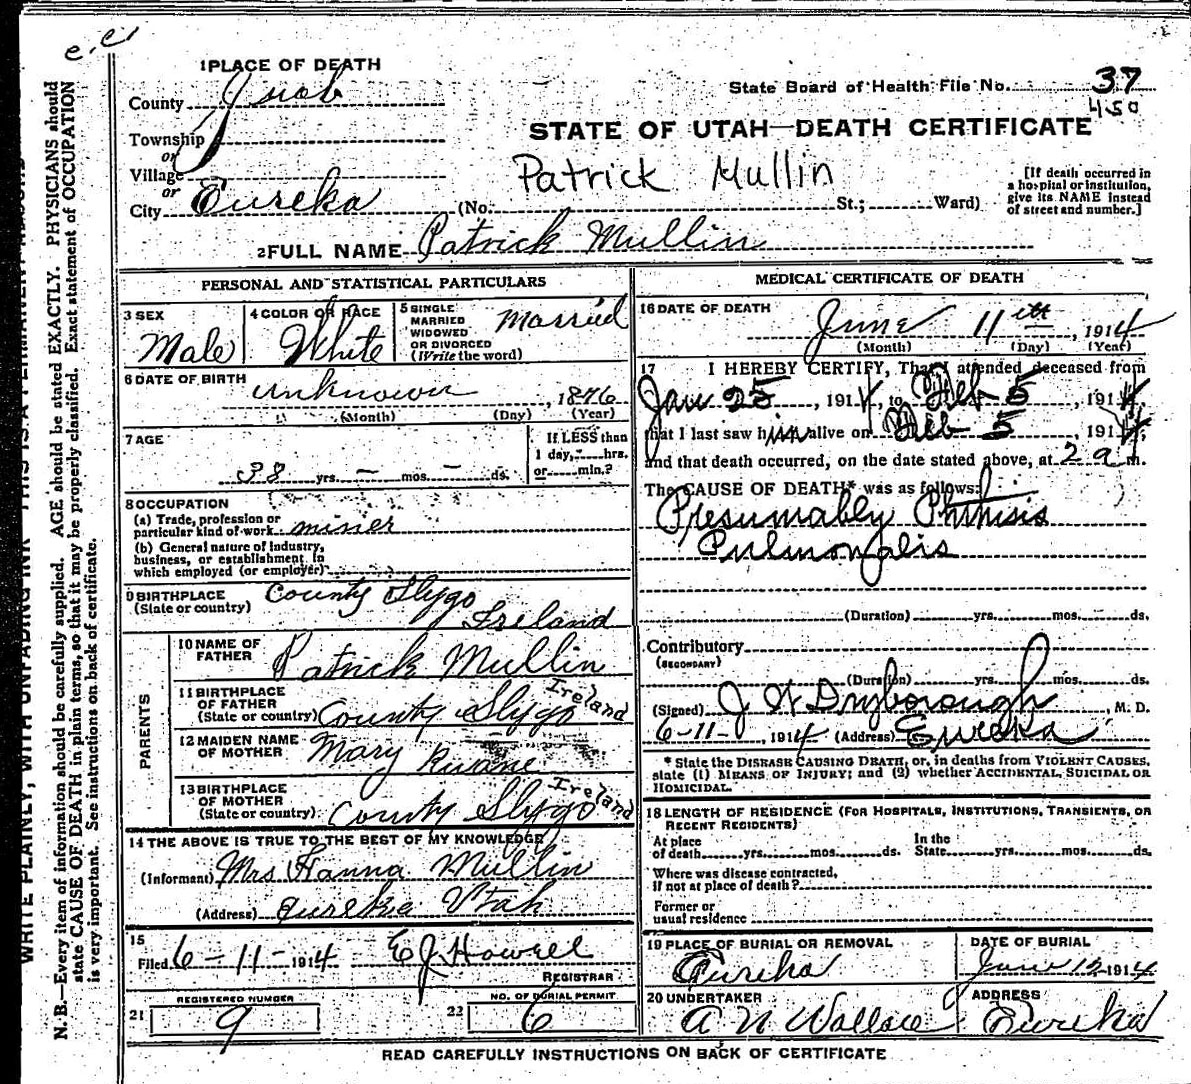 e.e.
1 PLACE OF DEATH
County Juab
State Board of Health File No. 37
450
Township
or
STATE OF UTAH—DEATH CERTIFICATE
Village
or
Patrick Mullin
City Eureka (No. St.; Ward)
[If death occurred in
a hospital or institution,
give its NAME instead
of street and number.]
2 FULL NAME Patrick Mullin
PERSONAL AND STATISTICAL PARTICULARS
3 SEX
Male
4 COLOR OR RACE
White
5 SINGLE
MARRIED
WIDOWED
OR DIVORCED
(Write the word)
Married
6 DATE OF BIRTH
unknown, 1876
(Month) (Day) (Year)
7 AGE
38 yrs. — mos. — ds.
If LESS than
1 day, hrs.
or min.?
8 OCCUPATION
(a) Trade, profession or
particular kind of work miner
(b) General nature of industry,
business, or establishment in
which employed (or employer)
9 BIRTHPLACE
(State or country)
County Slygo
Ireland
PARENTS
10 NAME OF
FATHER
Patrick Mullin
11 BIRTHPLACE
OF FATHER
(State or country) County Slygo Ireland
12 MAIDEN NAME
OF MOTHER
Mary
13 BIRTHPLACE
OF MOTHER
(State or country) County Slygo Ireland
14 THE ABOVE IS TRUE TO THE BEST OF MY KNOWLEDGE
(Informant) Mrs Hanna Mullin
(Address) Eureka Utah
15
Filed 6-11-1914 E J Howell
REGISTRAR
REGISTERED NUMBER
21 9
NO. OF BURIAL PERMIT
22 6
MEDICAL CERTIFICATE OF DEATH
16 DATE OF DEATH
June 11th, 1914
(Month) (Day) (Year)
17 I HEREBY CERTIFY, That I attended deceased from
Jan 25, 1914, to Feb 5, 1914,
that I last saw him alive on Feb 5, 1914,
and that death occurred, on the date stated above, at 2 a m.
The CAUSE OF DEATH* was as follows:
Presumably Phthisis
Pulmonalis
(Duration) yrs. mos. ds.
Contributory
(SECONDARY)
(Duration) yrs. mos. ds.
(Signed) J W Dryborough, M. D.
6-11-, 1914 (Address) Eureka
* State the DISEASE CAUSING DEATH, or, in deaths from VIOLENT CAUSES,
state (1) MEANS OF INJURY; and (2) whether ACCIDENTAL, SUICIDAL OR
HOMICIDAL.
18 LENGTH OF RESIDENCE (FOR HOSPITALS, INSTITUTIONS, TRANSIENTS, OR
RECENT RESIDENTS)
At place
of death yrs. mos. ds.
In the
State yrs. mos. ds.
Where was disease contracted,
if not at place of death?
Former or
usual residence
19 PLACE OF BURIAL OR REMOVAL
Eureka
DATE OF BURIAL
June 12, 1914
20 UNDERTAKER
A N Wallace
ADDRESS
Eureka
READ CAREFULLY INSTRUCTIONS ON BACK OF CERTIFICATE
WRITE PLAINLY, WITH UNFADING INK—THIS IS A PERMANENT RECORD
N. B.—Every item of information should be carefully supplied. AGE should be stated EXACTLY. PHYSICIANS should
state CAUSE OF DEATH in plain terms, so that it may be properly classified. Exact statement of OCCUPATION
is very important. See instructions on back of certificate.